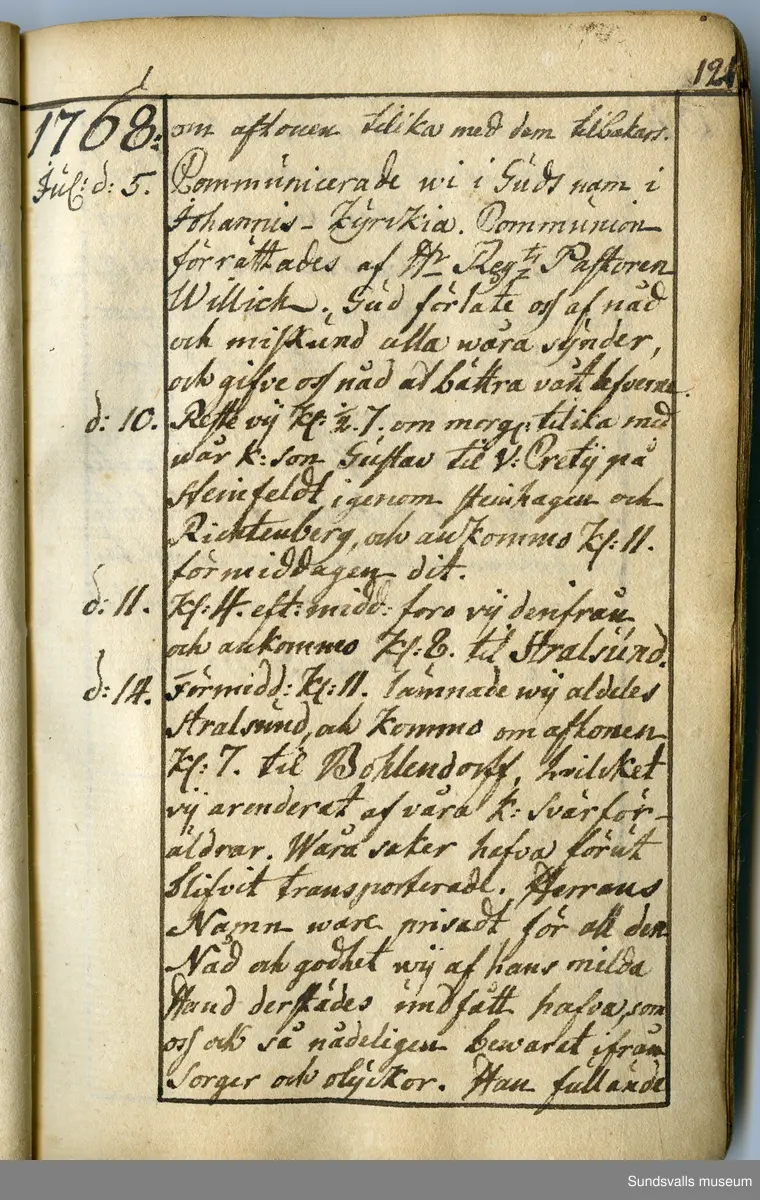 121
1768:
om aftonen tilika med dem tilbakars.
Jul: d: 5. Communicerade wi i Guds nam i
Johannis-Kyrckia. Communion
förrättades af Hr Regtz Pastoren
Willich. Gud förlåte oss af nåd
och miskund alla wåra synder,
och gifve oss nåd at bättra vårt lefverne.
d: 10. Reste vij Kl: ½ 7. om morg: tilika med
wår K: son Gustav til V: Pretij på
Steinfeldt igenom Steinhagen och
Richtenberg, och ankommo Kl: 11.
förmiddagen dit.
d: 11. Kl: 4. eft: midd: foro vij denfrån
och ankommo Kl: 8. til Stralsund.
d: 14. Förmidd: Kl: 11. lämnade wij aldeles
Stralsund, och kommo om aftonen
Kl: 7. til Bohlendorff, hvilcket
vij arenderat af våra K: Svärför-
äldrar. Wåra saker hafva förut
blifvit transporterade. Herrans
Namn ware prisadt för all den
Nåd och godhet wij af hans milda
Hand derstädes undfått hafva, som
oss och så nådeligen bewarat ifrån
sorger och olyckor. Han fullände
Sundsvalls museum